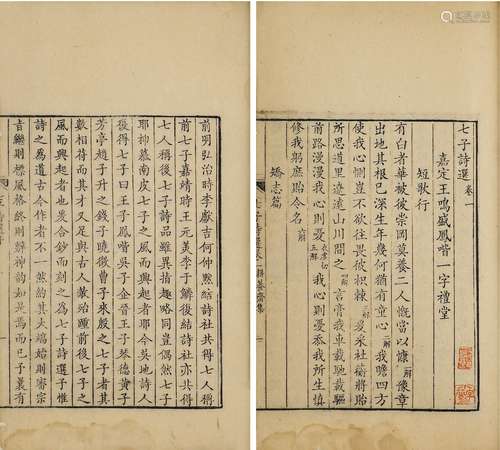 七子詩選卷一
嘉定王鳴盛鳳喈一字禮堂
短歌行
有白者華被彼崇岡莫養二人慨當以慷一解像章
出地其根已深生年幾何猶有童心二解我瞻四方
使我心惻豈不欲往畏彼枳棘三解爰采社蘅將貽
所思道里遼遠山川間之四解言膏我車載馳載驅
前路漫漫我心則憂五解我心則憂吞我所生慎
修我躬庶貽令名六解
矯志篇
前明弘治時李獻吉何仲默結詩社共得七人稱
前七子嘉靖時王元美李于鱗後結詩社亦共得
七人稱後七子詩品雖異指趣略同豈偶然七子
耶抑慕南皮七子之風而興起者耶今吳地詩人
復得七子曰王子鳳喈吳子企晉王子琴德黃子
芳亭趙子升之錢子曉徵曹子來殷之七子者其
數相符而其才又足與古人蒐紿踵前後七子之
風而興起者也爰合鈔而刻之為七子詩選子惟
詩之為道古今作者不一然其大端始則審宗
旨繼則標風格終則辨神韵如是焉而已予曩有